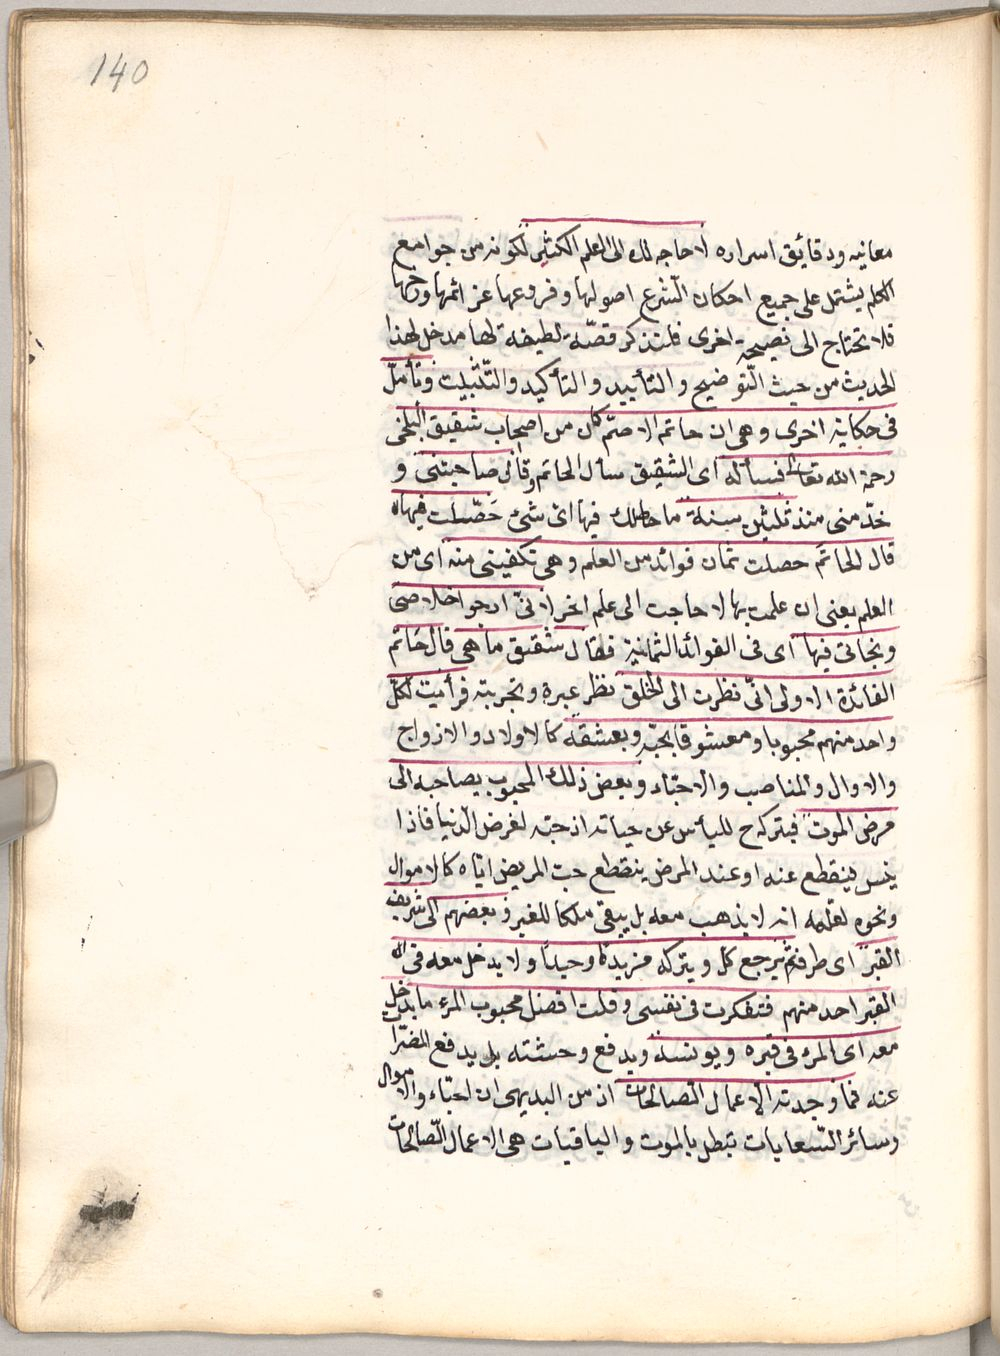 140
معانيه ودقائق اسراره لا حاجه لك الى العلم الكثير لكونه من جوامع
الكلم يشتمل على جميع احكان الشرع اصولها وفروعها عزائمها ورخصها
فلا تحتاج الى نصيحة اخرى فلنذكر قصّة لطيفة لها مدخل لهذا
الحديث من حيث التّوضيح والتأييد والتأكيد والتّثبيت وتأمل
فى حكاية اخرى وهى ان حاتم الاصمّ كان من اصحاب شقيق البلخى
رحمة الله تعالى فسأله اى الشقيق سأل الحاتم وقال صاحبتنى و
خدّ منى منذ ثلثين سنة ما حاصلك فيها اىّ شئ حَصّلت فيها
قال الحاتم حصلت ثمان فوائد من العلم وهى تكفينى منه اى من
العلم يعنى ان علمت بها لا حاجت الى علم اخر لانىّ ارجو اخلاصى
ونجاتى فيها اى فى الفوائد الثمانية فقال شقيق ما هى قال حَاتم
الفائدة الاولى انىّ نظرت الى الخلق نظر عبرة وتجربته فرأيت لكلّ
واحد منهم محبوبا ومعشوقا يحبّه ويعشقه كالاولاد والازواج
والاوال والمناصب والاحبّاء وبعض ذلك المحبوب يصاحبه الى
مرض الموت فيتركه ح لليأس عن حياته اذ حبّه لغرض الدّنيا فاذا
يئس ينقطع عنه او عند المرض ينقطع حبّ المريض ايّاه كالاموال
ونحوه لعلمه انه لا يذهب معه بل يبقى ملكا للغير وبعضهم الى شريف
القبر اى طرفه ثم يرجع كل ويتركه فريدًا وحيدًا ولا يدخل معه فى
القبر احد منهم فتفكرت فى نفسى وقلت افضل محبوب المرء ما يدخل
معه اى المرء فى قبره ويونسه ويدفع وحشته بل يدفع المضرّات
عنه فما وجدته الا الاعمال الصالحات اذ من البديهى ان احبّاء والاموال
وسائر السّعايات تبطل بالموت والباقيات هى الاعمال الصّالحات